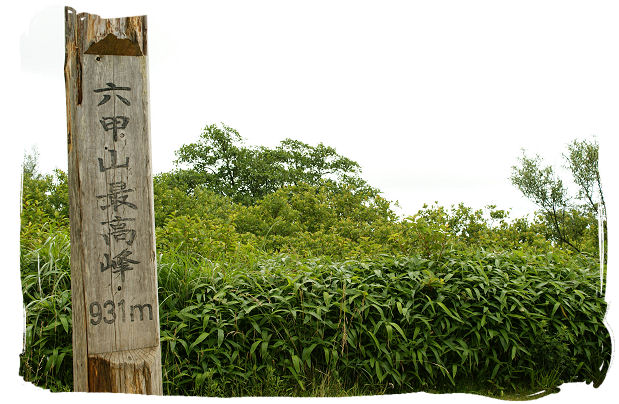 六甲山最高峰
931m